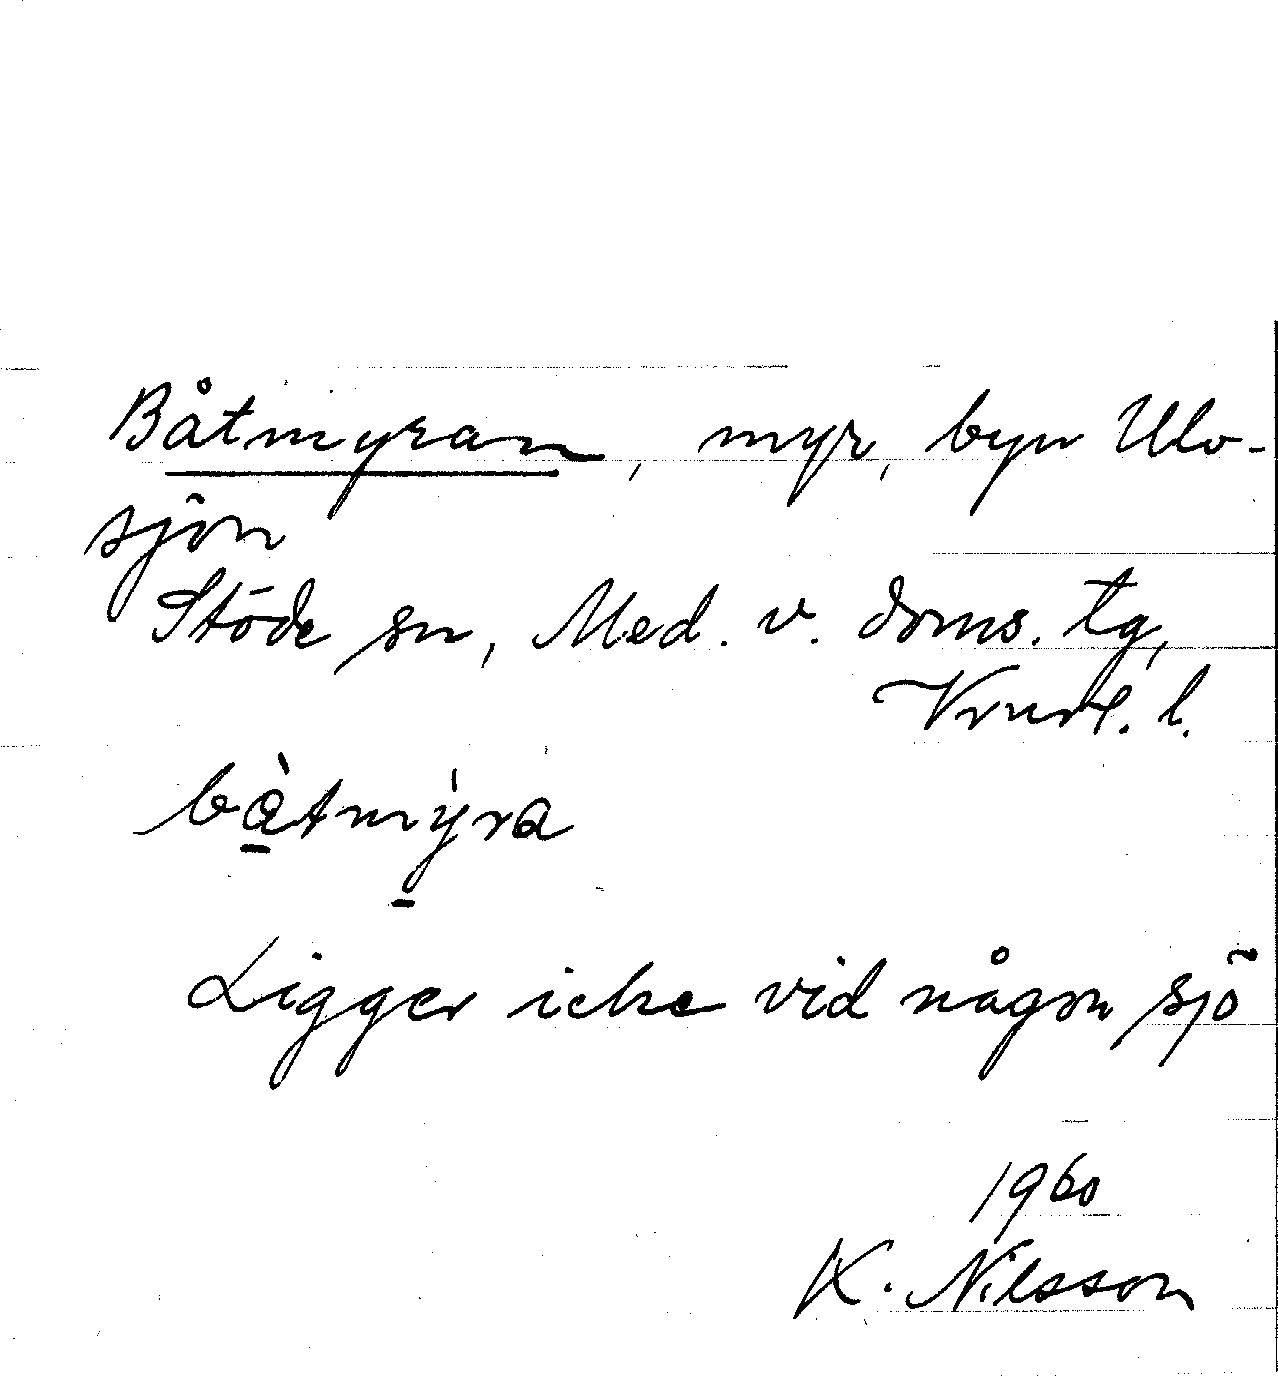 Båtmyran, myr, byn Ulv-
sjön
Stöde sn, Med. v. doms. tg,
l.
bà̱tmỳ̱ra
Ligger icke vid någon sjö
1960
K. Nilsson